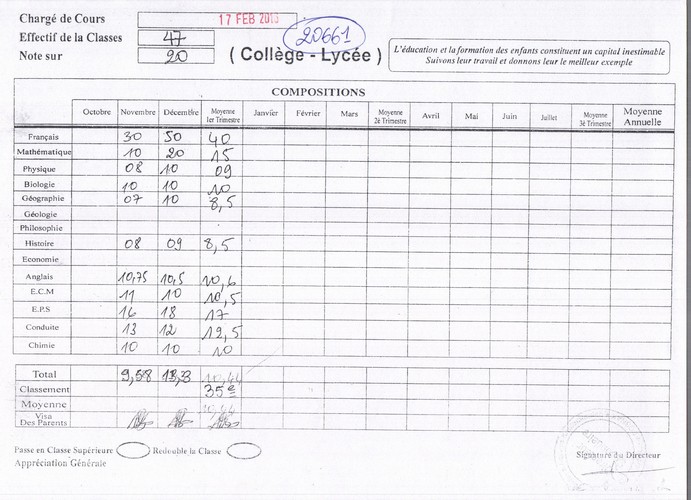 Chargé de Cours 17 FEB 2013
Effectif de la Classes 47 20661
Note sur 20 ( Collège - Lycée )
L'éducation et la formation des enfants constituent un capital inestimable
Suivons leur travail et donnons leur le meilleur exemple
COMPOSITIONS
Octobre Novembre Décembre Moyenne 1er Trimestre Janvier Février Mars Moyenne 2è Trimestre Avril Mai Juin Juillet Moyenne 3è Trimestre Moyenne Annuelle
Français 30 50 40
Mathématique 10 20 15
Physique 08 10 09
Biologie 10 10 10
Géographie 07 10 8,5
Géologie
Philosophie
Histoire 08 09 8,5
Economie
Anglais 10,75 10,5 10,6
E.C.M 11 10 10,5
E.P.S 16 18 17
Conduite 13 12 12,5
Chimie 10 10 10
Total 9,58 13,3 10,44
Classement 35e
Moyenne 10,44
Visa
Des Parents
Passe en Classe Supérieure Redouble la Classe
Appréciation Générale
Signature du Directeur